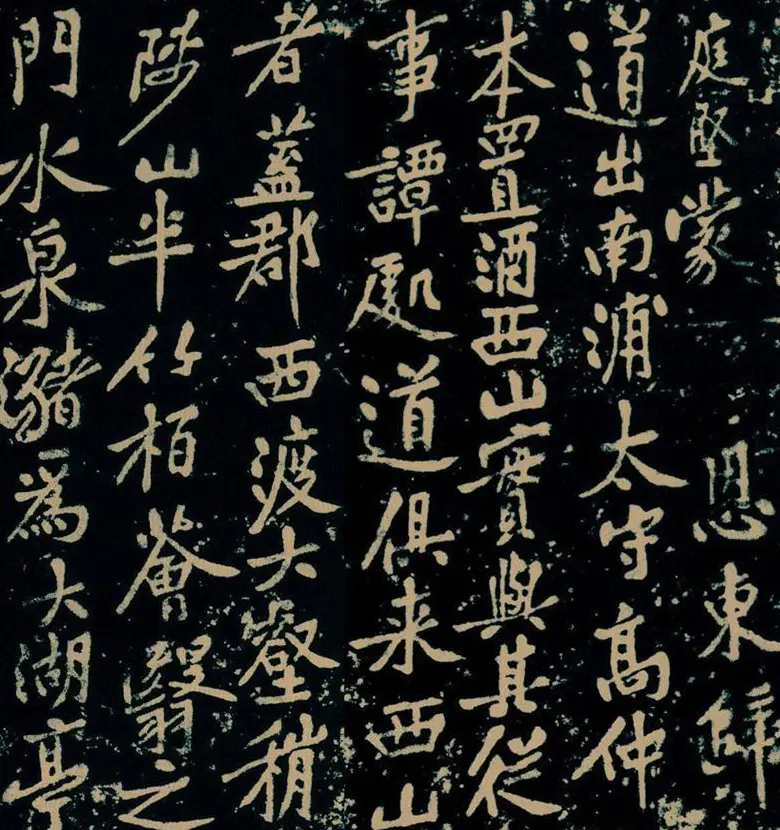 庭堅蒙恩東歸
道出南浦太守高仲
本置酒西山實與其從
事譚處道俱来西山
者蓋郡西渡大壑稍
陟山半竹柏薈翳之
門水泉瀦為大湖亭